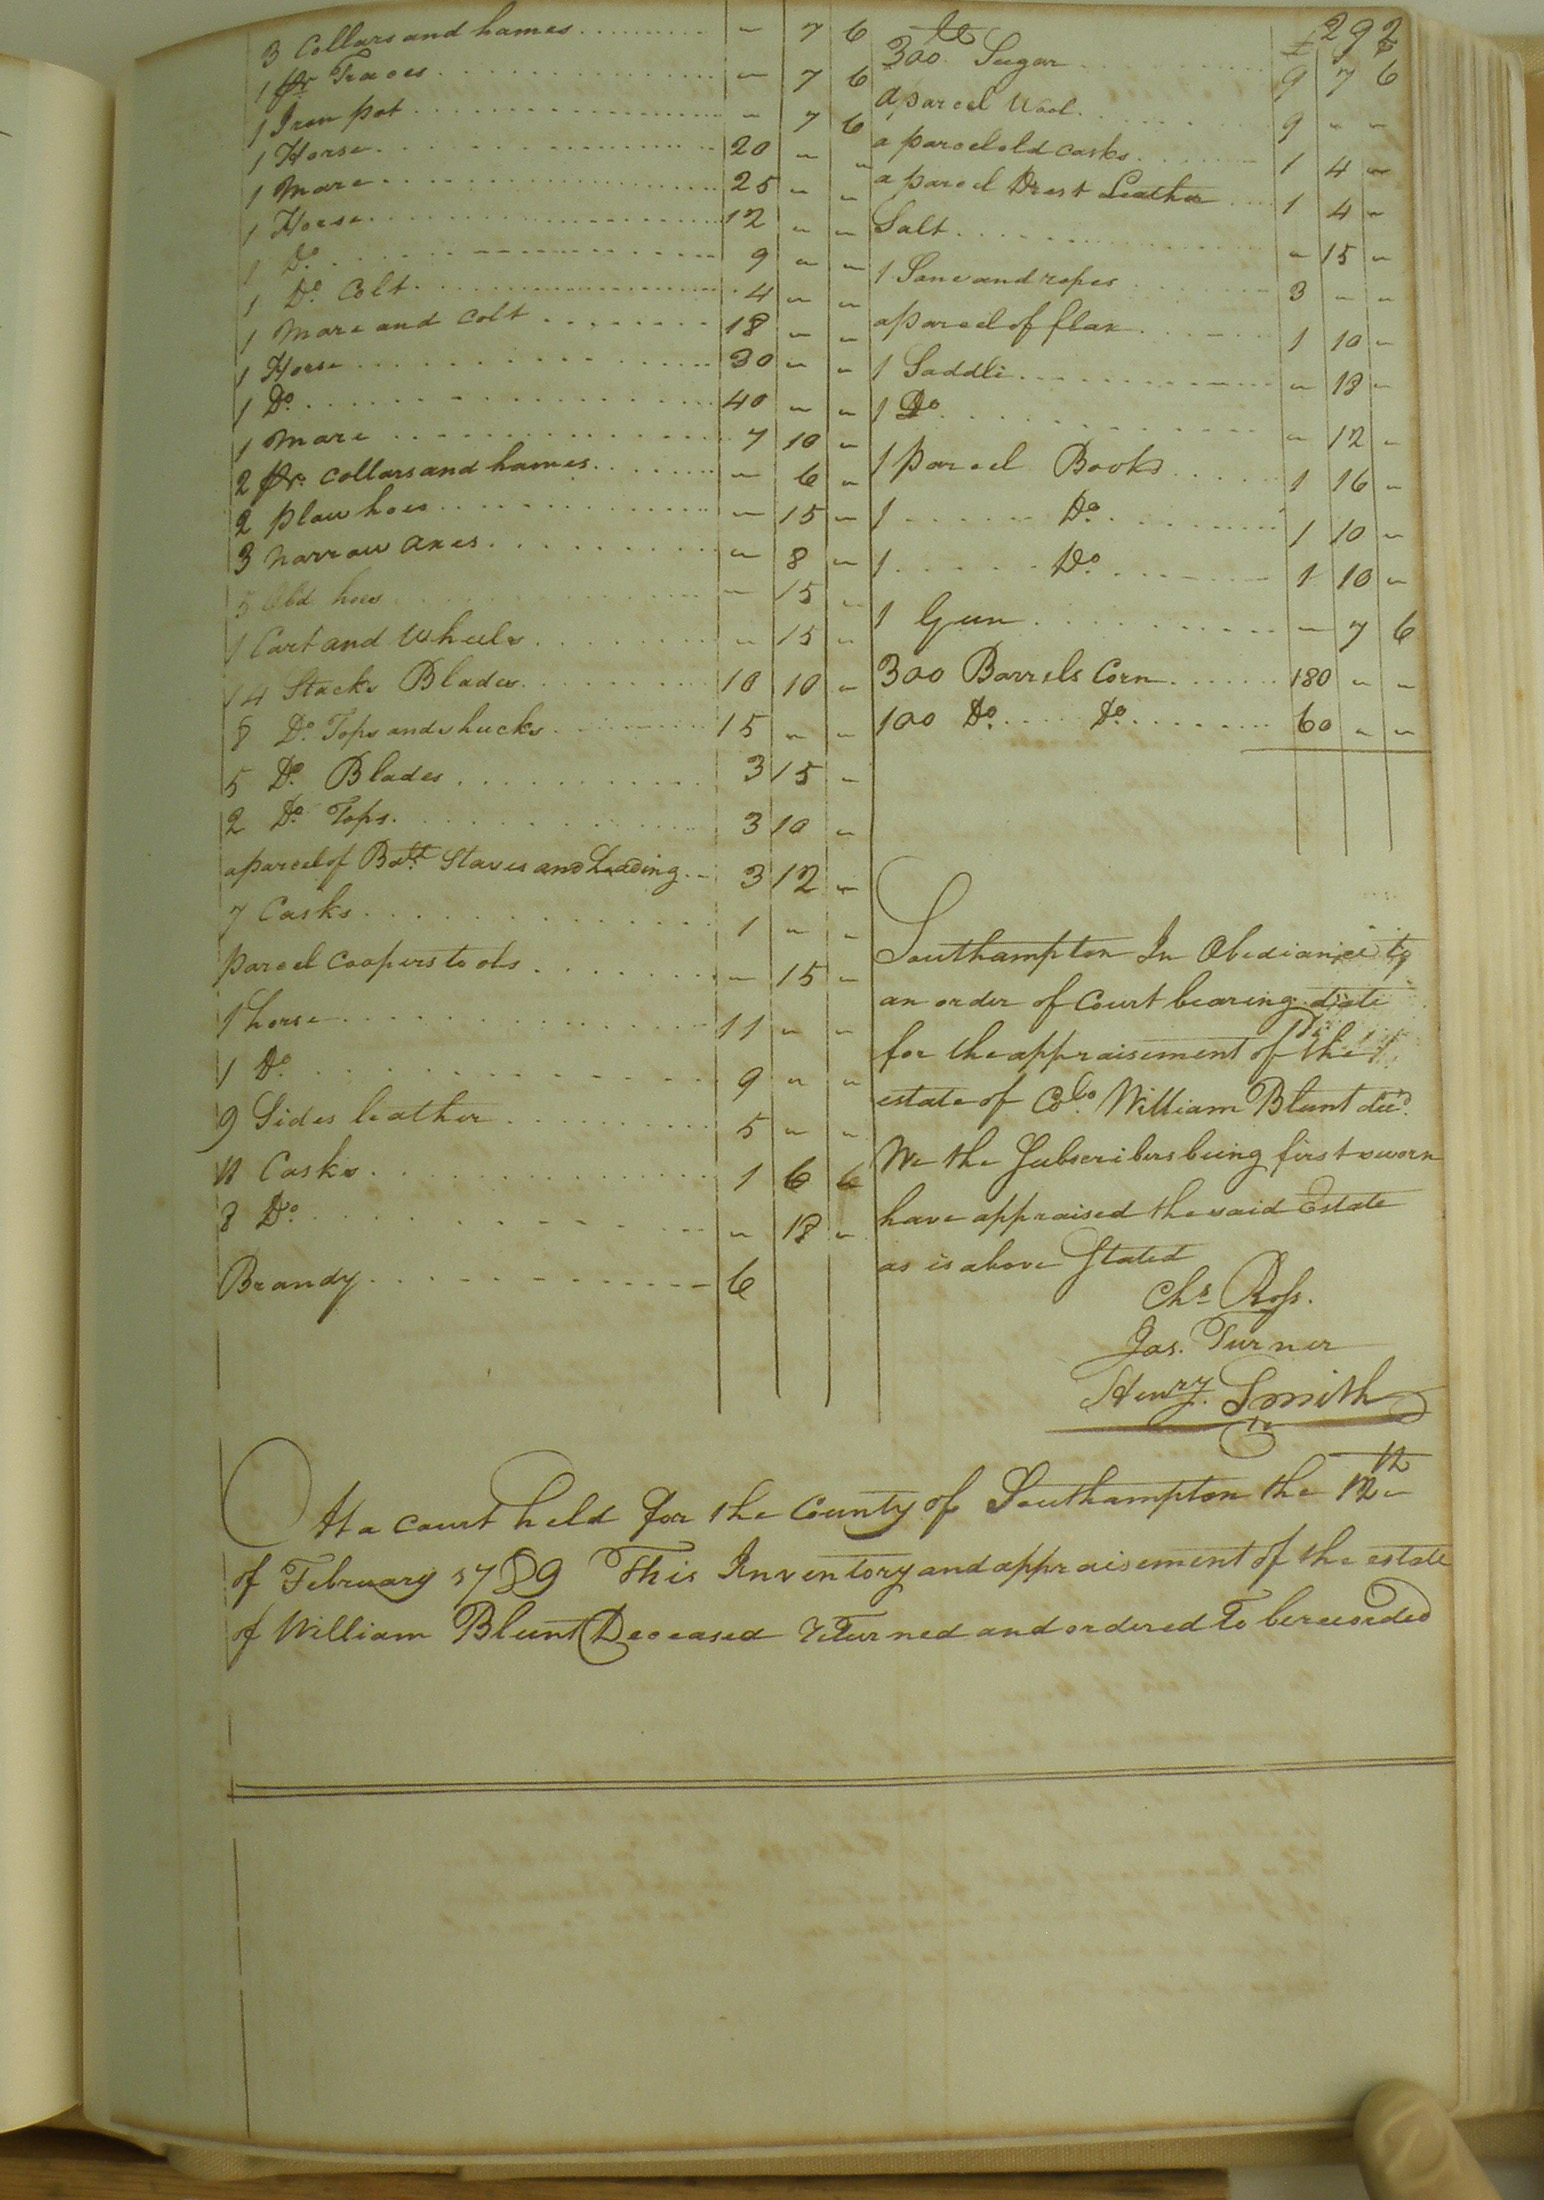 292
3 Collars and hames - 7 6
1 pr. Traces - 7 6
1 Iron pot - 7 6
1 Horse 20 - -
1 Mare 25 - -
1 Horse 12 - -
1 Do. 9 - -
1 Do. Colt 4 - -
1 Mare and Colt 18 - -
1 Horse 30 - -
1 Do. 40 - -
1 Mare 7 10 -
2 pr. Collars and hames - 6 -
2 plow hoes - 15 -
3 narrow axes - 8 -
5 Old hoes - 15 -
1 Cart and Wheels - 15 -
14 Stacks Blades 10 10 -
8 Do. Tops and shucks 15 - -
5 Do. Blades 3 15 -
2 Do. Tops 3 10 -
a parcel of Staves and 3 12 -
7 Casks 1 - -
parcel Coopers tools - 15 -
1 horse 11 - -
1 Do. 9 - -
9 Sides leather 5 - -
11 Casks 1 6 6
8 Do. - 18 -
Brandy 6
300 lb Sugar 9 7 6
a parcel Wool 9 - -
a parcel old casks 1 4 -
a parcel Drest Leather 1 4 -
Salt - 15 -
1 Sane and ropes 3 - -
a parcel of flax 1 10 -
1 Saddle - 18 -
1 Do - 12 -
1 parcel Books 1 16 -
1 Do. 1 10 -
1 Do. 1 10 -
1 Gun - 7 6
300 Barrels Corn 180 - -
100 Do. Do. 60 - -
Southampton In Obediance to
an order of Court bearing date
for the appraisement of the
estate of Colo. William Blunt decd.
We the Subscribers being first sworn
have appraised the said Estate
as is above Stated
Chs Ross.
Jas. Turner
Henry. Smith
At a court held for the County of Southampton the 12th
of February 1789 This Inventory and appraisement of the estate
of William Blunt Deceased returned and ordered To be recorded